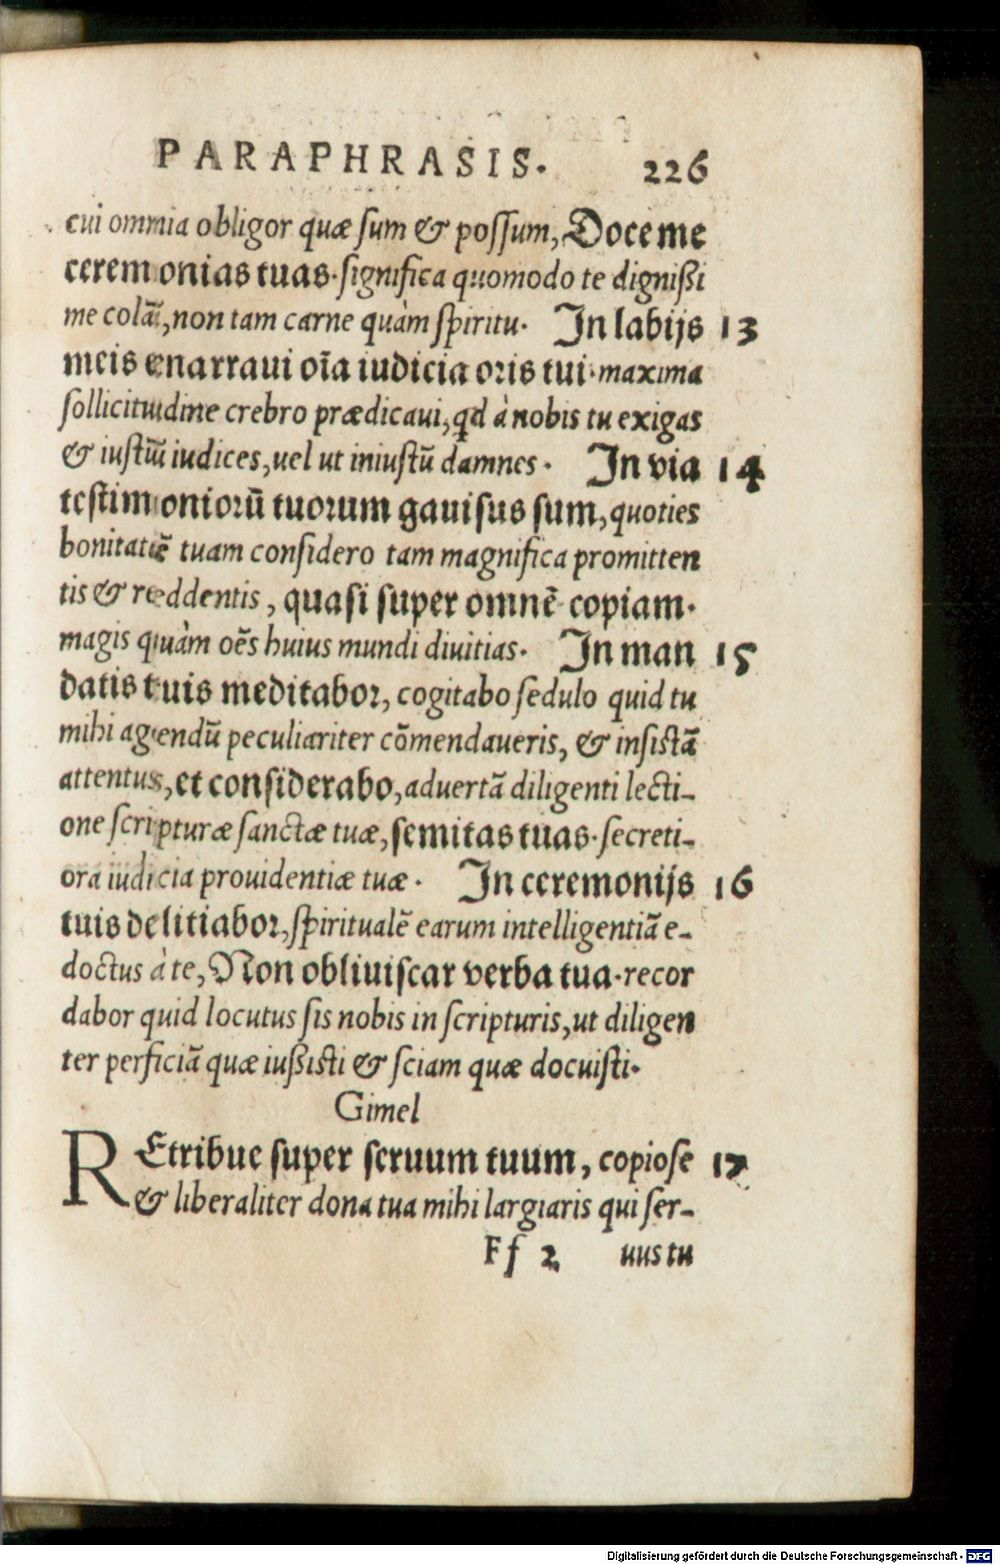 PARAPHRASIS. 226
cui omnia obligor quæ sum & possum, Doce me
ceremonias tuas. significa quomodo te dignißi
me colā, non tam carne quàm spiritu. In labijs 13
meis enarraui oīa iudicia oris tui. maxima
sollicitudine crebro prædicaui, qd à nobis tu exigas
& iustū iudices, uel ut iniustū damnes. In via 14
testimoniorū tuorum gauisus sum, quoties
bonitatē tuam considero tam magnifica promitten
tis & reddentis, quasi super omnē copiam.
magis quàm oēs huius mundi diuitias. In man 15
datis tuis meditabor, cogitabo sedulo quid tu
mihi agendū peculiariter cōmendaueris, & insistā
attentus, et considerabo, aduertā diligenti lecti-
one scripturæ sanctæ tuæ, semitas tuas. secreti-
ora iudicia prouidentiæ tuæ. In ceremonijs 16
tuis delitiabor, spiritualē earum intelligentiā e-
doctus à te, Non obliuiscar verba tua. recor
dabor quid locutus sis nobis in scripturis, ut diligen
ter perficiā quæ iußisti & sciam quæ docuisti.
Gimel
REtribue super seruum tuum, copiose 17
& liberaliter dona tua mihi largiaris qui ser-
Ff 2 uus tu
Digitalisierung gefördert durch die Deutsche Forschungsgemeinschaft - DFG